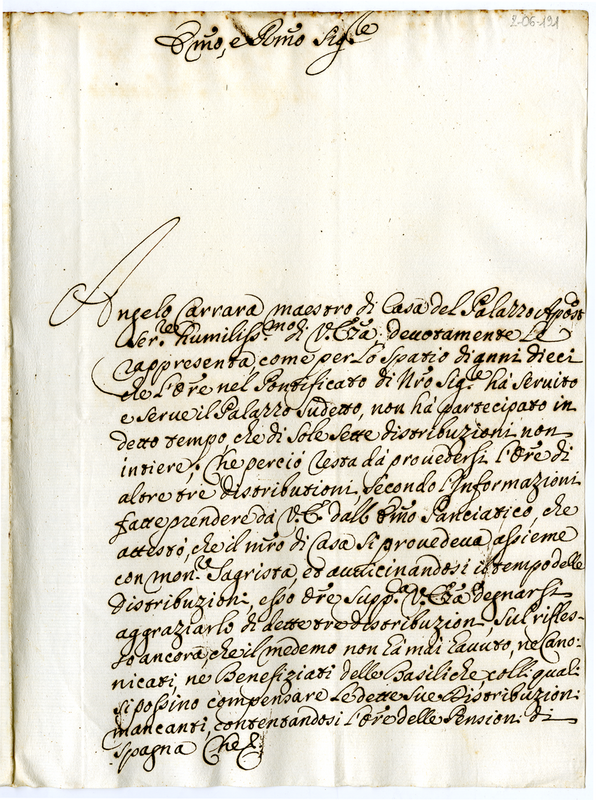 2-06-121
Emo, e Rmo Sig.re
Angelo Carrara maestro di Casa del Palazzo Apost
Ser.re humiliss.mo di V. Eza devotamente Le
rappresenta come per lo spatio di anni dieci
che l'Ore nel Pontificato di Nro Sig.re ha servito
e serve il Palazzo sudetto, non ha partecipato in
detto tempo che di sole sette distribuzioni non
intiere; che perciò resta da provedersi l'Ore di
altre tre distributioni secondo l'Informazioni
fatte prendere da V. E. dall Emo Panciatico, che
attestò, che il mro di Casa si provedeva assieme
con mon.r Sagrista, ed avvicinandosi il tempo delle
Distribuzioni, esso Ore supp.ca V. Eza degnarsi
aggraziarlo di dette tre distribuzioni, sul rifles-
so ancora, che il medemo non hà mai havuto, ne Cano-
nicati, ne Benefiziati delle Basiliche colli quali
si possino compensare le dette sue Distribuzioni
mancanti, contentandosi l'Ore delle Pensioni di
Spagna Che &